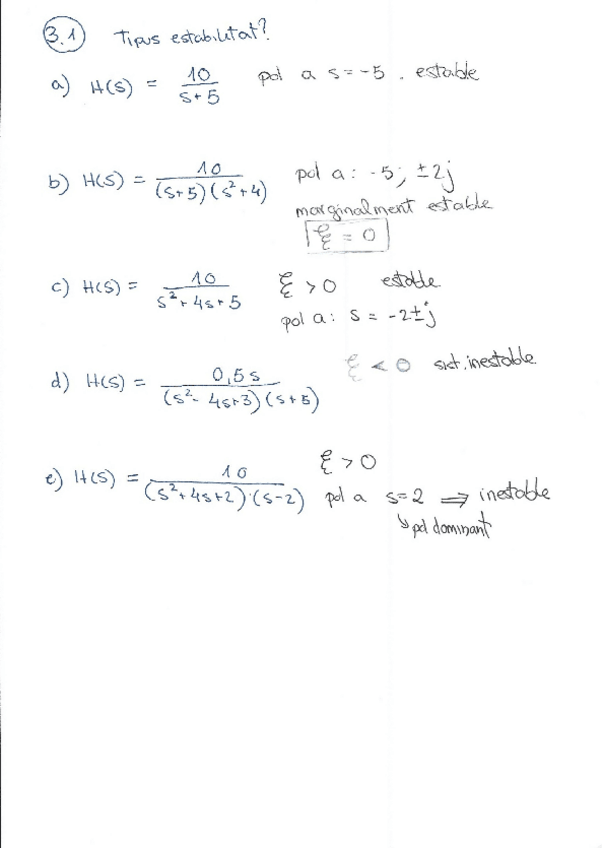 3.1 Tipus estabilitat?
a) H(s) = 10 / (s+5) pol a s=-5. estable
b) H(s) = 10 / ((s+5)(s²+4)) pol a: -5; ±2j
marginalment estable
ξ = 0
c) H(s) = 10 / (s²+4s+5) ξ > 0 estable
pol a: s = -2±j
d) H(s) = 0,5s / ((s²-4s+3)(s+5)) ξ < 0 sist. inestable
e) H(s) = 10 / ((s²+4s+2)·(s-2)) ξ > 0
pol a s=2 ⟹ inestable
↘ pol dominant